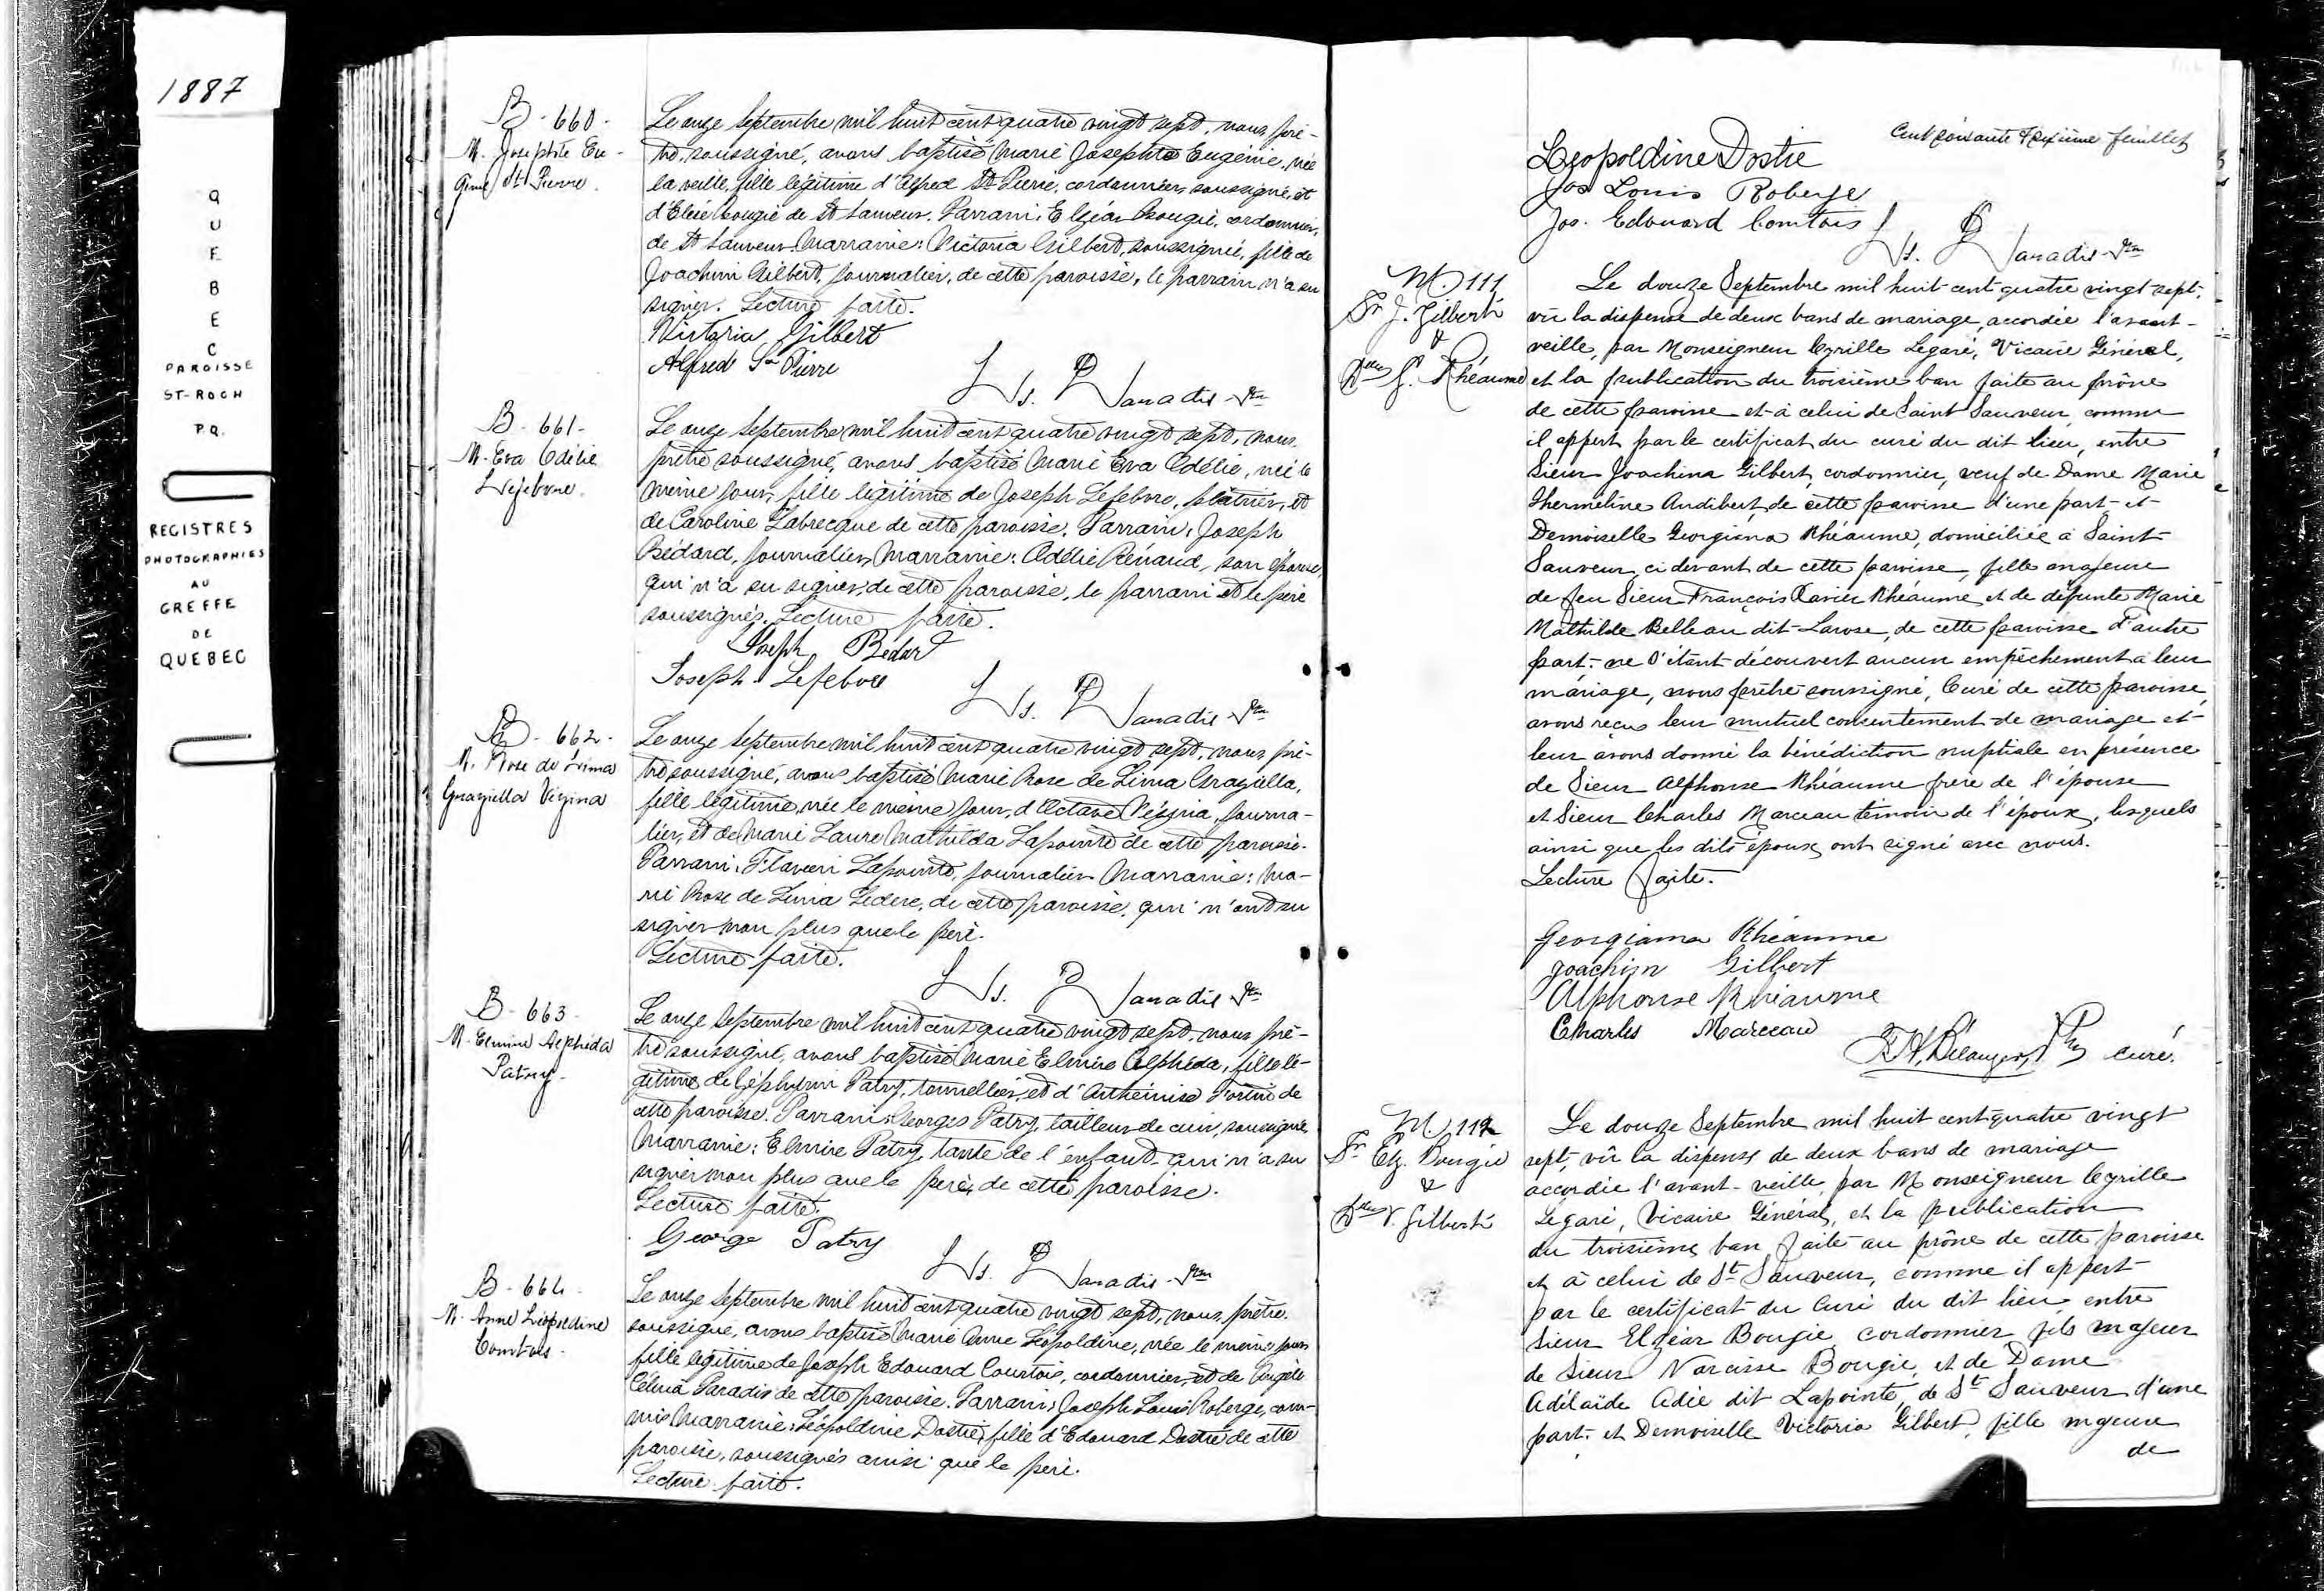 1887
QUEBEC
PAROISSE
ST-ROCH
P.Q.
REGISTRES
PHOTOGRAPHIES
AU
GREFFE
DE
QUEBEC
B-660-
M. Josephte Eu-
génie St Pierre.
Le onze Septembre mil huit cent quatre vingt sept, nous, prê-
tre soussigné, avons baptisé Marie Josephte Eugénie, née
la veille, fille légitime d'Alfred St Pierre, cordonnier, soussigné, et
d'Elzée Bougie de St Sauveur. Parrain: Elzéar Bougie, cordonnier,
de St Sauveur. Marraine: Victoria Gilbert, soussignée, fille de
Joachim Gilbert, journalier, de cette paroisse, le parrain n'a su
signer. Lecture faite.
Victoria Gilbert
Alfred St Pierre
Ls. P Paradis Ptre
B-661-
M. Eva Odélie
Lefebvre.
Le onze Septembre mil huit cent quatre vingt sept, nous,
prêtre soussigné, avons baptisé Marie Eva Odélie, née le
même jour, fille légitime de Joseph Lefebvre, plâtrier, et
de Caroline Labrecque de cette paroisse. Parrain: Joseph
Bédard, journalier, Marraine: Odélie Renaud, son épouse,
qui n'a su signer, de cette paroisse, le parrain et le père
soussignés. Lecture faite.
Joseph Bédard
Joseph Lefebvre
Ls. P Paradis Ptre
B-662-
M. Rose de Lima
Graziella Vézina
Le onze Septembre mil huit cent quatre vingt sept, nous, prê-
tre soussigné, avons baptisé Marie Rose de Lima Graziella,
fille légitime, née le même jour, d'Octave Vézina, journa-
lier, et de Marie Laure Mathilda Lapointe de cette paroisse.
Parrain: Flavien Lapointe, journalier. Marraine: Ma-
rie Rose de Lima Leclerc, de cette paroisse, qui n'ont su
signer non plus que le père.
Lecture faite.
Ls. P Paradis Ptre
B-663-
M. Elmire Alphéda
Patry.
Le onze Septembre mil huit cent quatre vingt sept, nous prê-
tre soussigné, avons baptisé Marie Elmire Alphéda, fille lé-
gitime de Zéphirin Patry, tonnellier, et d'Arthémise Fortin de
cette paroisse. Parrain: Georges Patry, tailleur de cuir, soussigné,
Marraine: Elmire Patry, tante de l'enfant, qui n'a su
signer non plus que le père, de cette paroisse.
Lecture faite.
George Patry
Ls. P Paradis Ptre
B-664-
M. Anne Léopoldine
Comtois.
Le onze Septembre mil huit cent quatre vingt sept, nous, prêtre
soussigné, avons baptisé Marie Anne Léopoldine, née le même jour
fille légitime de Joseph Edouard Courtois, cordonnier, et de Angèle
Célina Paradis de cette paroisse. Parrain: Joseph Louis Roberge, com-
mis Marraine: Léopoldine Dostie, fille d'Edouard Dostie de cette
paroisse, soussignés ainsi que le père.
Lecture faite.
Cent soixante & sixième feuillet
Léopoldine Dostie
Jos Louis Roberge
Jos. Edouard Comtois
Ls. P Paradis Ptre
M 111
Sr J. Gilbert
&
Dlle G. Rhéaume
Le douze Septembre mil huit cent quatre vingt sept,
vu la dispense de deux bans de mariage, accordée l'avant-
veille, par Monseigneur Cyrille Legaré, Vicaire Général,
et la publication du troisième ban faite au prône
de cette paroisse et à celui de Saint Sauveur, comme
il appert par le certificat du curé du dit lieu, entre
Sieur Joachim Gilbert, cordonnier, veuf de Dame Marie
Thermeline Audibert, de cette paroisse d'une part et
Demoiselle Georgiana Rhéaume, domiciliée à Saint
Sauveur, ci devant de cette paroisse, fille majeure
de feu Sieur François Xavier Rhéaume et de défunte Marie
Mathilde Belleau dit Larose, de cette paroisse d'autre
part; ne s'étant découvert aucun empêchement à leur
mariage, nous prêtre soussigné, Curé de cette paroisse,
avons reçu leur mutuel consentement de mariage et
leur avons donné la bénédiction nuptiale en présence
de Sieur Alphonse Rhéaume frère de l'épouse
et Sieur Charles Marceau témoin de l'époux, lesquels
ainsi que les dits époux ont signé avec nous.
Lecture faite.
Georgiana Rhéaume
Joachim Gilbert
Alphonse Rhéaume
Charles Marceau
F. H. Bélanger, Ptre curé.
M. 112
Sr Elz. Bougie
&
Dlle V. Gilbert
Le douze Septembre mil huit cent quatre vingt
sept, vu la dispense de deux bans de mariage
accordée l'avant-veille, par Monseigneur Cyrille
Legaré, Vicaire Général, et la publication
du troisième ban faite au prône de cette paroisse
et à celui de St Sauveur, comme il appert
par le certificat du Curé du dit lieu, entre
Sieur Elzéar Bougie, cordonnier, fils majeur
de Sieur Narcisse Bougie, et de Dame
Adélaïde Adie dit Lapointe, de St Sauveur d'une
part; et Demoiselle Victoria Gilbert, fille majeure
de